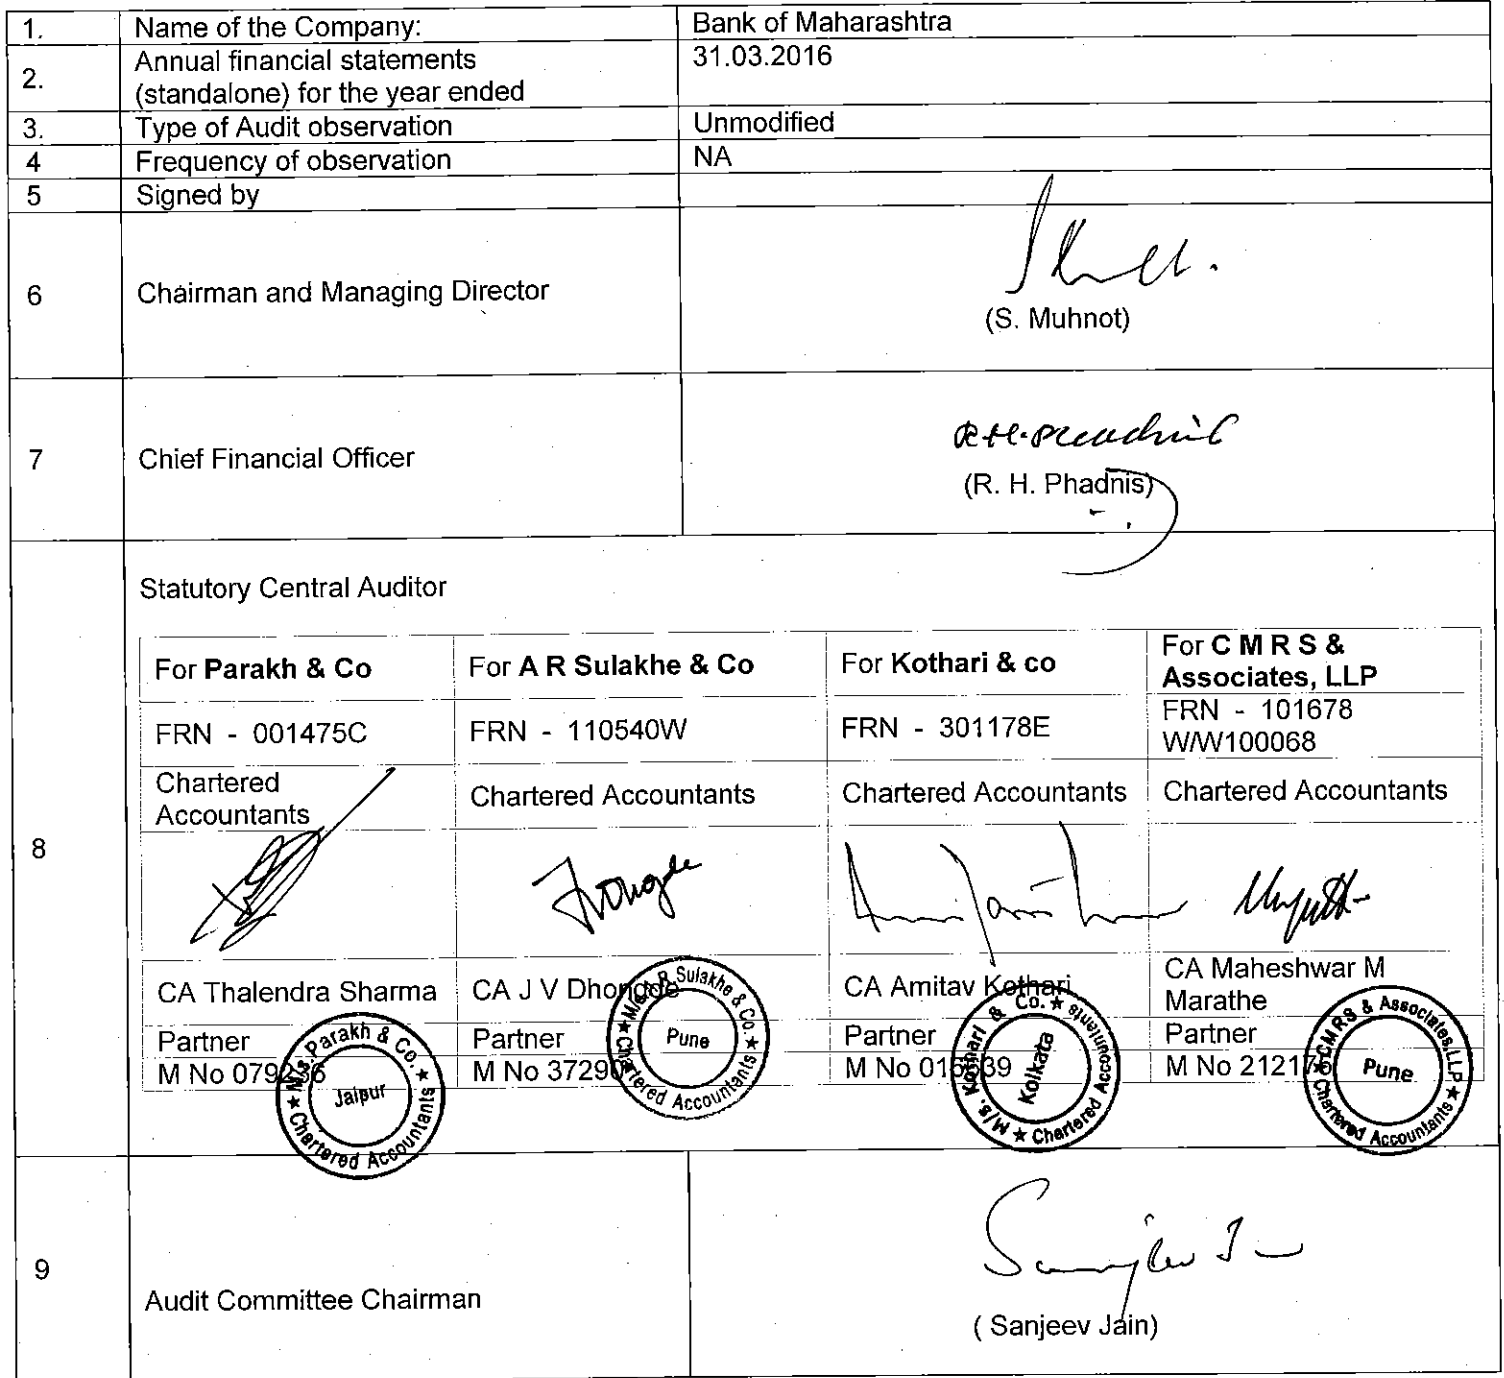 1. Name of the Company: Bank of Maharashtra
2. Annual financial statements 31.03.2016
(standalone) for the year ended
3. Type of Audit observation Unmodified
4 Frequency of observation NA
5 Signed by
6 Chairman and Managing Director
(S. Muhnot)
7 Chief Financial Officer
R.H. Phadnis
(R. H. Phadnis)
8
Statutory Central Auditor
For Parakh & Co
For A R Sulakhe & Co
For Kothari & co
For C M R S &
Associates, LLP
FRN - 001475C
FRN - 110540W
FRN - 301178E
FRN - 101678
W/W100068
Chartered
Accountants
Chartered Accountants
Chartered Accountants
Chartered Accountants
CA Thalendra Sharma
CA J V Dhongde
CA Amitav Kothari
CA Maheshwar M
Marathe
Partner
Partner
Partner
Partner
M No
M No
M No
M No
M/s. Parakh & Co. ★ Chartered Accountants ★
Jaipur
M/s A R Sulakhe & Co. ★ Chartered Accountants ★
Pune
M/s. Kothari & Co. ★ Chartered Accountants ★
Kolkata
CMRS & Associates, LLP ★ Chartered Accountants ★
Pune
9 Audit Committee Chairman
Sanjeev Jain
( Sanjeev Jain)